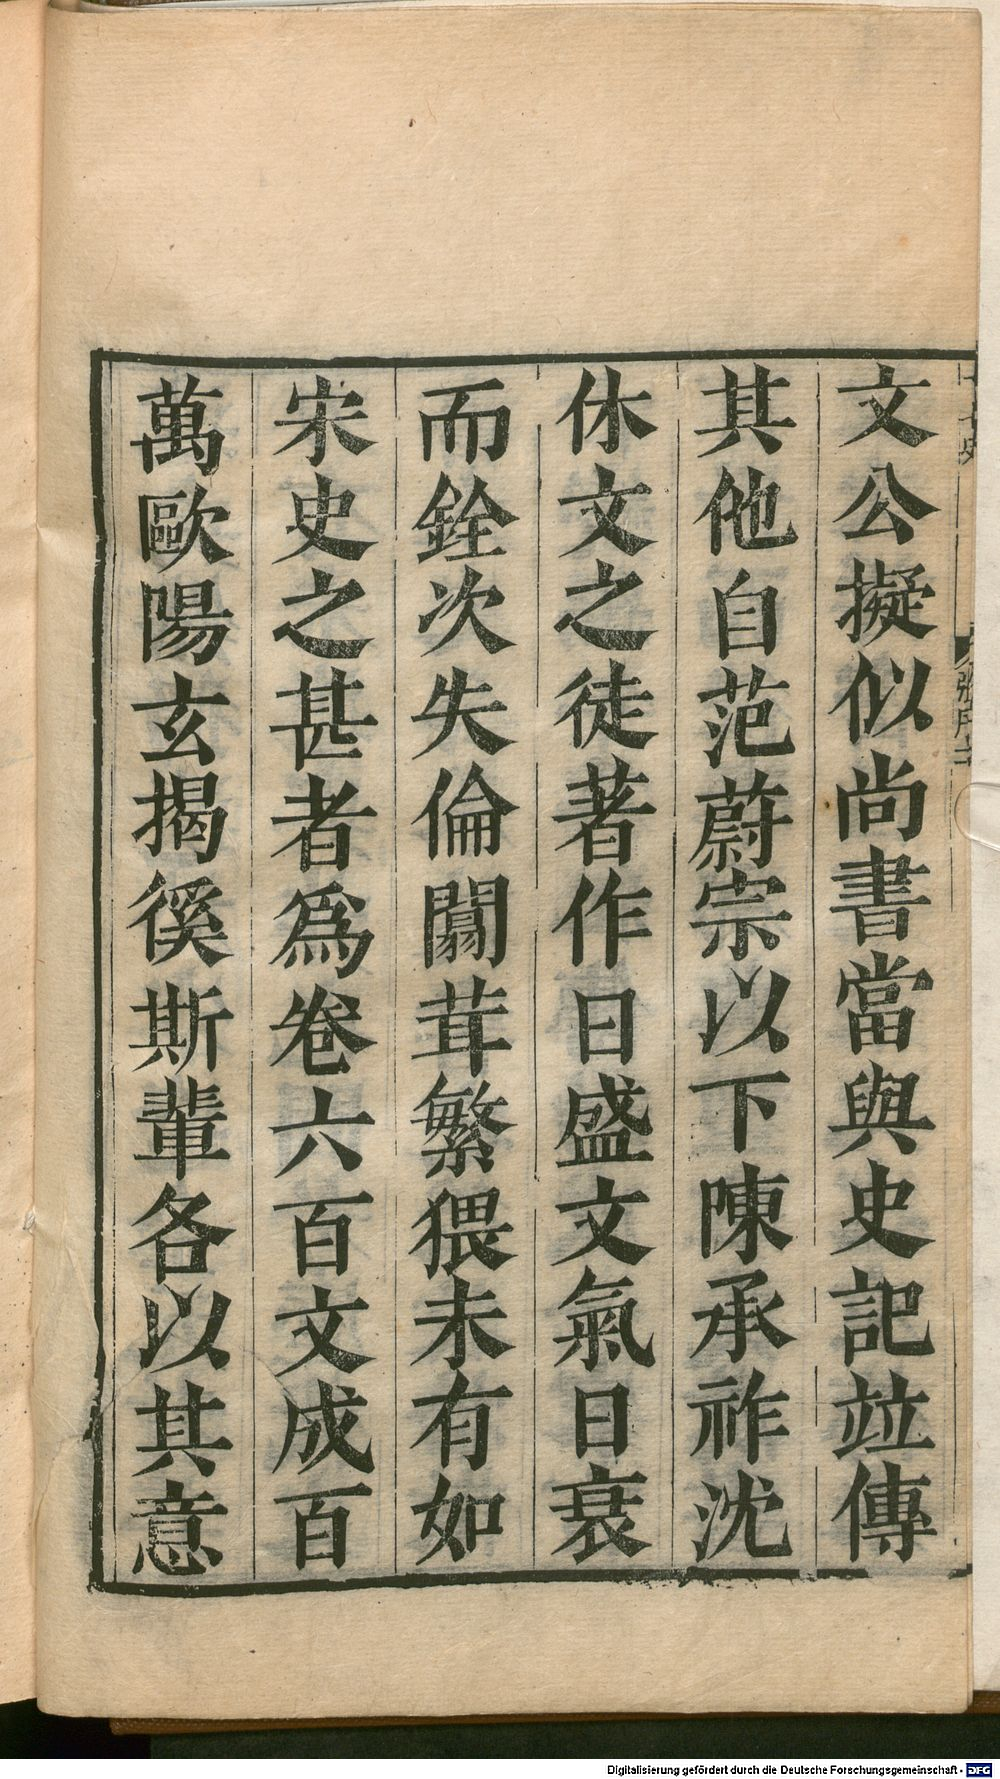 文公擬似尚書當與史記竝傳
其他自范蔚宗以下陳承祚沈
休文之徒著作日盛文氣日衰
而銓次失倫闒茸繁猥未有如
宋史之甚者爲卷六百文成百
萬歐陽玄揭徯斯輩各以其意
Digitalisierung gefördert durch die Deutsche Forschungsgemeinschaft - DFG